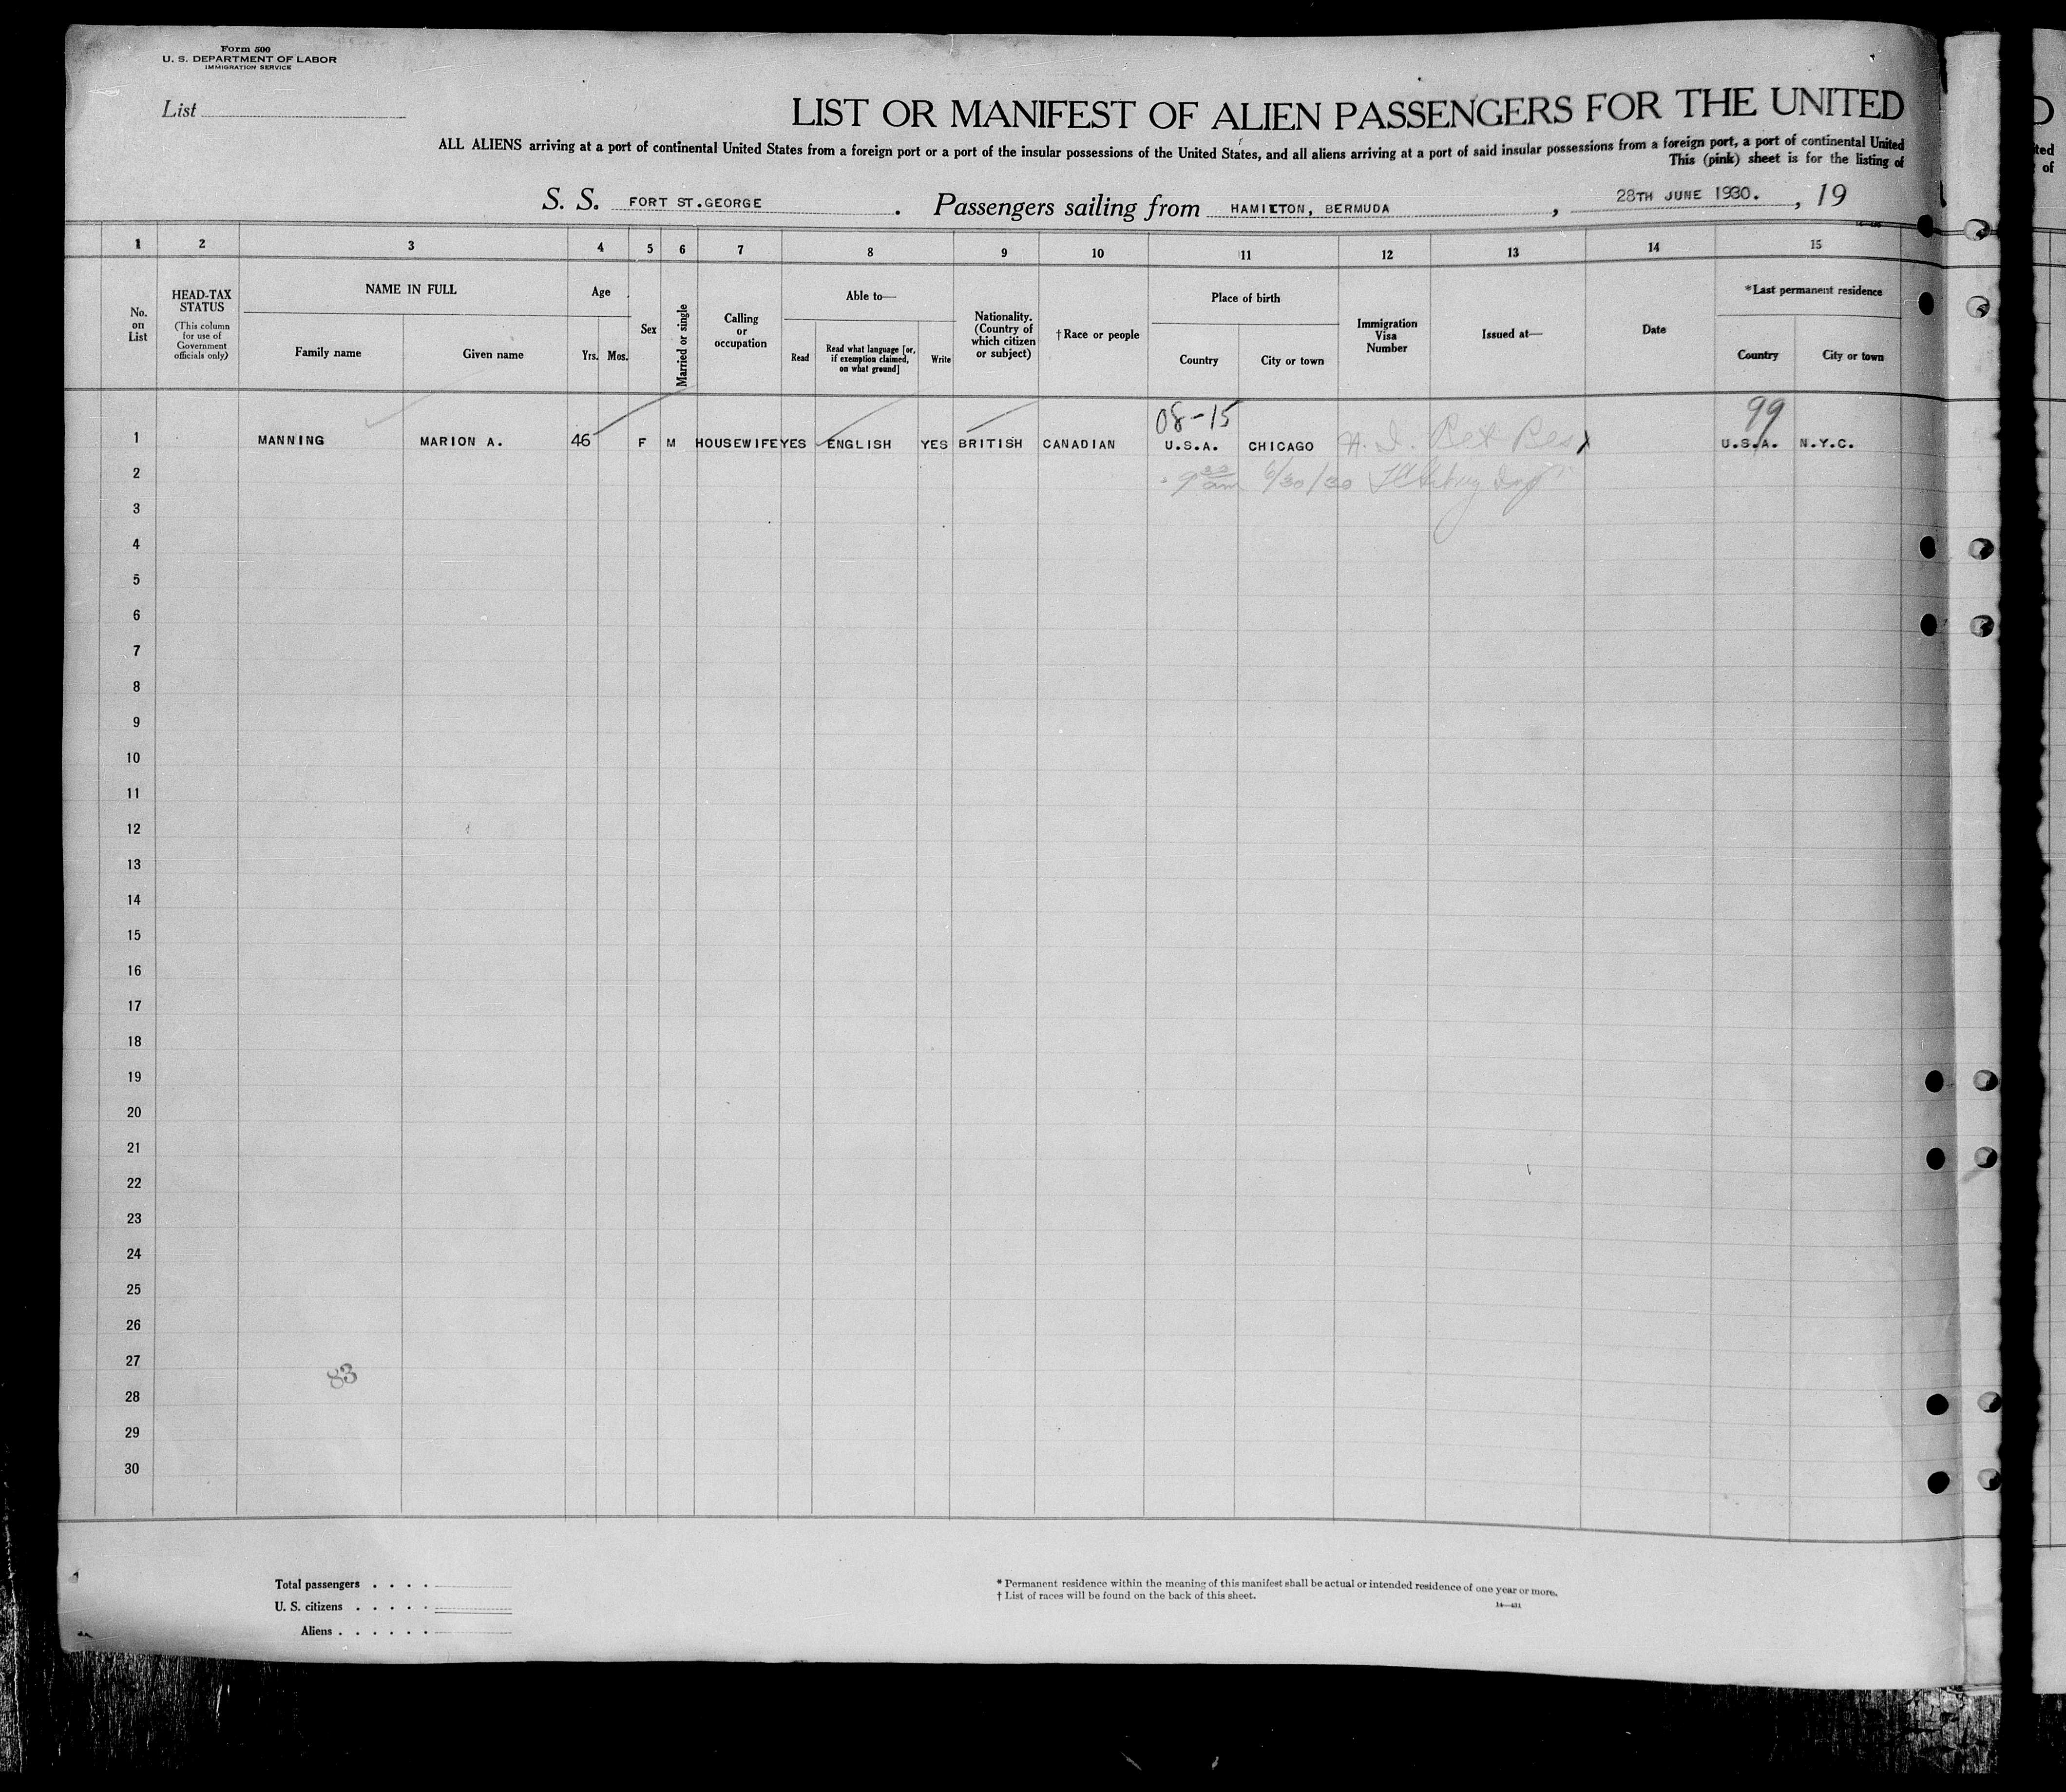 Form 500
U. S. DEPARTMENT OF LABOR
IMMIGRATION SERVICE
List
LIST OR MANIFEST OF ALIEN PASSENGERS FOR THE UNITED
ALL ALIENS arriving at a port of continental United States from a foreign port or a port of the insular possessions of the United States, and all aliens arriving at a port of said insular possessions from a foreign port, a port of continental United
This (pink) sheet is for the listing of
S. S. FORT ST.GEORGE . Passengers sailing from HAMILTON, BERMUDA , 28TH JUNE 1930. , 19
1 2 3 4 5 6 7 8 9 10 11 12 13 14 15
No. on List
HEAD-TAX STATUS
(This column for use of Government officials only)
NAME IN FULL
Family name
Given name
Age
Yrs. Mos.
Sex
Married or single
Calling or occupation
Able to—
Read
Read what language [or, if exemption claimed, on what ground]
Write
Nationality. (Country of which citizen or subject)
† Race or people
Place of birth
Country
City or town
Immigration Visa Number
Issued at—
Date
*Last permanent residence
Country
City or town
08-15 99
1 MANNING MARION A. 46 F M HOUSEWIFE YES ENGLISH YES BRITISH CANADIAN U.S.A. CHICAGO U.S.A. N.Y.C.
2 9 30 am 6/30/30
3
4
5
6
7
8
9
10
11
12
13
14
15
16
17
18
19
20
21
22
23
24
25
26
27
83
28
29
30
Total passengers . . . .
U. S. citizens . . . . .
Aliens . . . . . .
* Permanent residence within the meaning of this manifest shall be actual or intended residence of one year or more.
† List of races will be found on the back of this sheet.
14—431